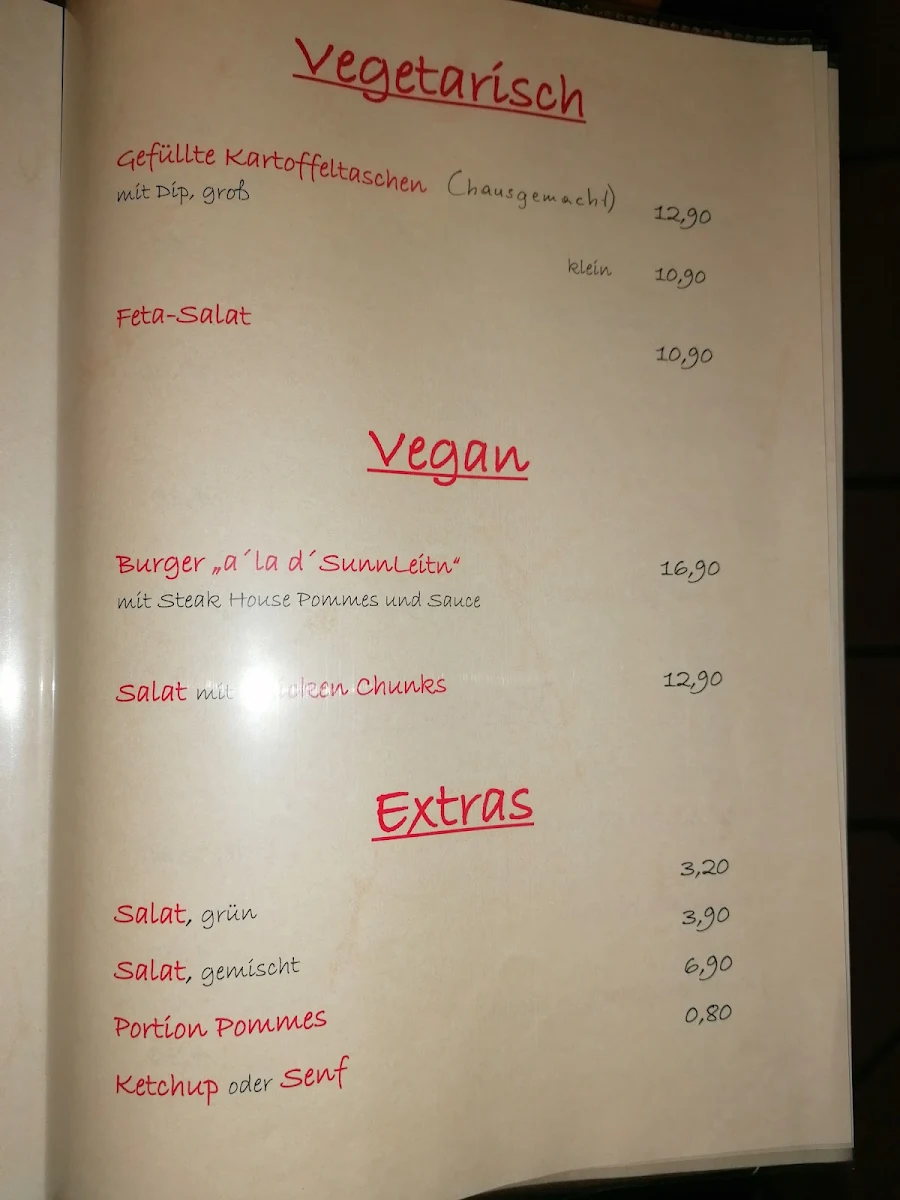 Vegetarisch
Gefüllte Kartoffeltaschen (hausgemacht)
mit Dip, groß 12,90
klein 10,90
Feta-Salat
10,90
Vegan
Burger „a´la d´SunnLeitn“ 16,90
mit Steak House Pommes und Sauce
Salat mit Chunks 12,90
Extras
3,20
Salat, grün 3,90
Salat, gemischt 6,90
Portion Pommes 0,80
Ketchup oder Senf